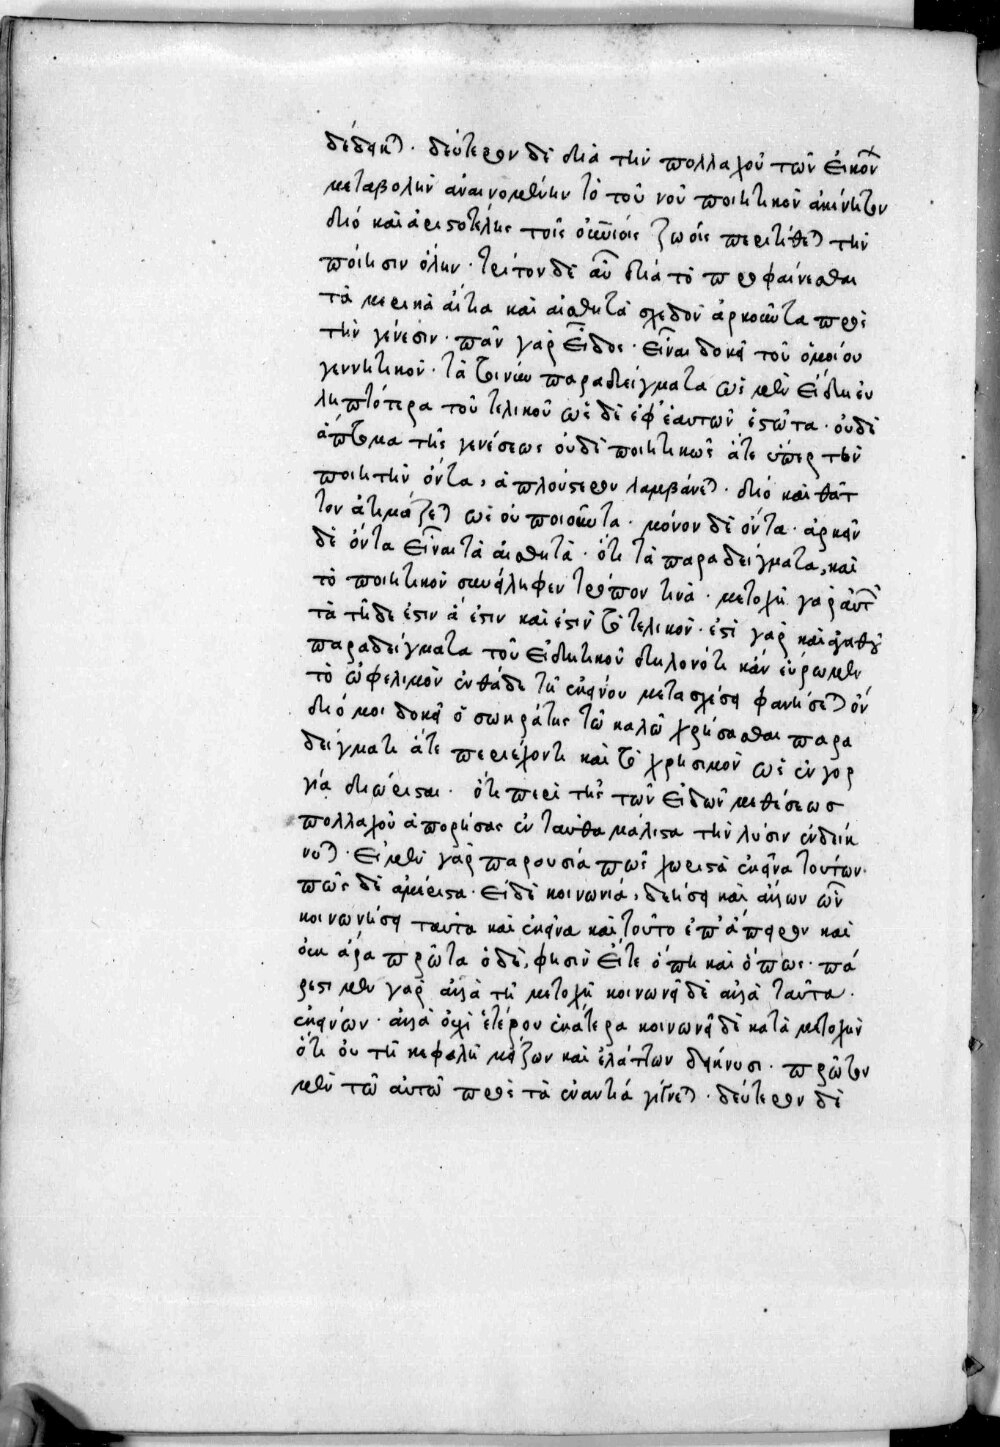 δέδεικται. δεύτερον δὲ διὰ τὴν πολλαχοῦ τῶν εἰκόνων
μεταβολὴν ἀναινομένην τὸ τοῦ νοῦ ποιητικὸν ἀκίνητον
διό καὶ ἀριστοτέλης τοῖς οὐρανίοις ζώοις περιτίθεται τὴν
ποίησιν ὅλην. τρίτον δὲ αὖ διὰ τὸ προφαίνεσθαι
τὰ μερικὰ αἴτια καὶ αἰσθητὰ σχεδὸν ἀρκοῦντα πρὸς
τὴν γένεσιν. πᾶν γὰρ εἶδος. εἶναι δοκεῖ τοῦ ὁμοίου
γεννητικόν. τὰ τοίνυν παραδείγματα ὡς μὲν εἴδη εὐ
ληπτότερα τοῦ τελικοῦ ὡς δὲ ἐφ' ἑαυτῶν ἑστῶτα. οὐδὲ
ἁπτόμενα τῆς γενέσεως οὐδὲ ποιητικῶς ἅτε ὑπὲρ τὴν
ποιητὴν ὄντα, ἁπλούστερον λαμβάνεται. διό καὶ θᾶτ
τον ἀτιμάζεται ὡς οὐ ποιοῦντα. μόνον δὲ ὄντα. ἀρκεῖν
δὲ ὄντα εἶναι τὰ αἰσθητά. ὅτι τὰ παραδείγματα, καὶ
τὸ ποιητικὸν συνείληφεν τρόπον τινά. μετοχῇ γὰρ αὐτῶν
τὰ τῇδε ἐστιν ἅ ἐστιν καὶ ἐστὶν τὸ τελικόν. ἐστὶ γὰρ καὶ ἀγαθοῦ
παραδείγματα τοῦ εἰδητικοῦ δηλονότι κἂν εὕρωμεν
τὸ ὠφέλιμον ἐνθάδε τῇ ἐκείνου μετασχέσει φανήσεται ὄν
διό μοι δοκεῖ ὁ σωκράτης τῷ καλῷ χρήσασθαι παρα
δείγματι ἅτε περιέχοντι καὶ τὸ χρήσιμον ὡς ἐν γοργ
ίᾳ διώρισται. ὅτι περὶ τῆς τῶν εἰδῶν μεθέξεως
πολλαχοῦ ἀπορήσας ἐνταῦθα μάλιστα τὴν λύσιν ἐνδείκ
νυται. εἰ μὲν γὰρ παρουσία πῶς χωριστὰ ἐκεῖνα τούτων.
πῶς δὲ ἀμέριστα. εἰ δὲ κοινωνία, δεήσει καὶ ἄλλων ὧν
κοινωνήσει ταῦτα καὶ ἐκεῖνα καὶ τοῦτο ἐπ' ἄπειρον καὶ
οὐκ ἄρα πρῶτα ὁ δὲ, φησὶν εἴτε ὅπη καὶ ὅπως. πά
ρεστι μὲν γὰρ ἀλλὰ τῇ μετοχῇ κοινωνεῖ δὲ ἀλλὰ ταῦτα.
ἐκείνων. ἀλλὰ οὐχὶ ἑτέρου ἑκάτερα κοινωνεῖ δὲ κατὰ μετοχὴν
ὅτι οὐ τῇ κεφαλῇ μείζων καὶ ἐλάττων δείκνυσι. πρῶτον
μὲν τῷ αὐτῷ πρὸς τὰ ἐναντία γίνεται. δεύτερον δὲ